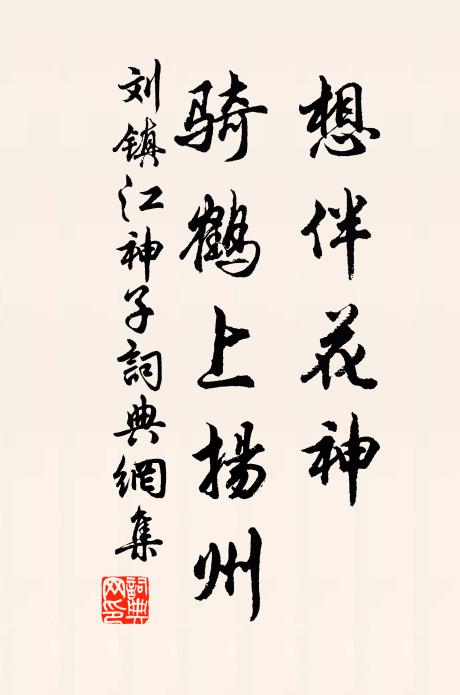 想伴花神
骑鹤上揚州
刘镇江神子詞典網集
詞典网印